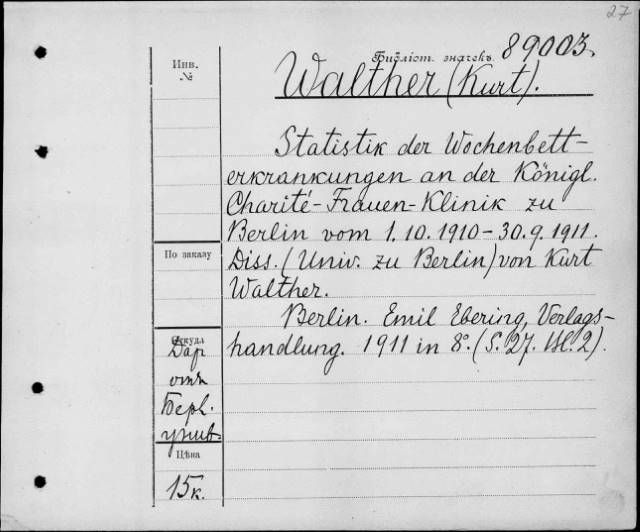 27
Инв.
№
Библіот. значекъ 89003.
Walther (Kurt).
Statistik der Wochenbett-
erkrankungen an der Königl.
Charité-Frauen-Klinik zu
Berlin vom 1.10.1910-30.9.1911.
По заказу
Diss. (Univ. zu Berlin) von Kurt
Walther.
Berlin. Emil Ebering, Verlags-
handlung. 1911 in 8°. (S. 27. Bl. 2).
Откуда
Дар
отъ
Берл.
унив.
Цѣна
15 к.